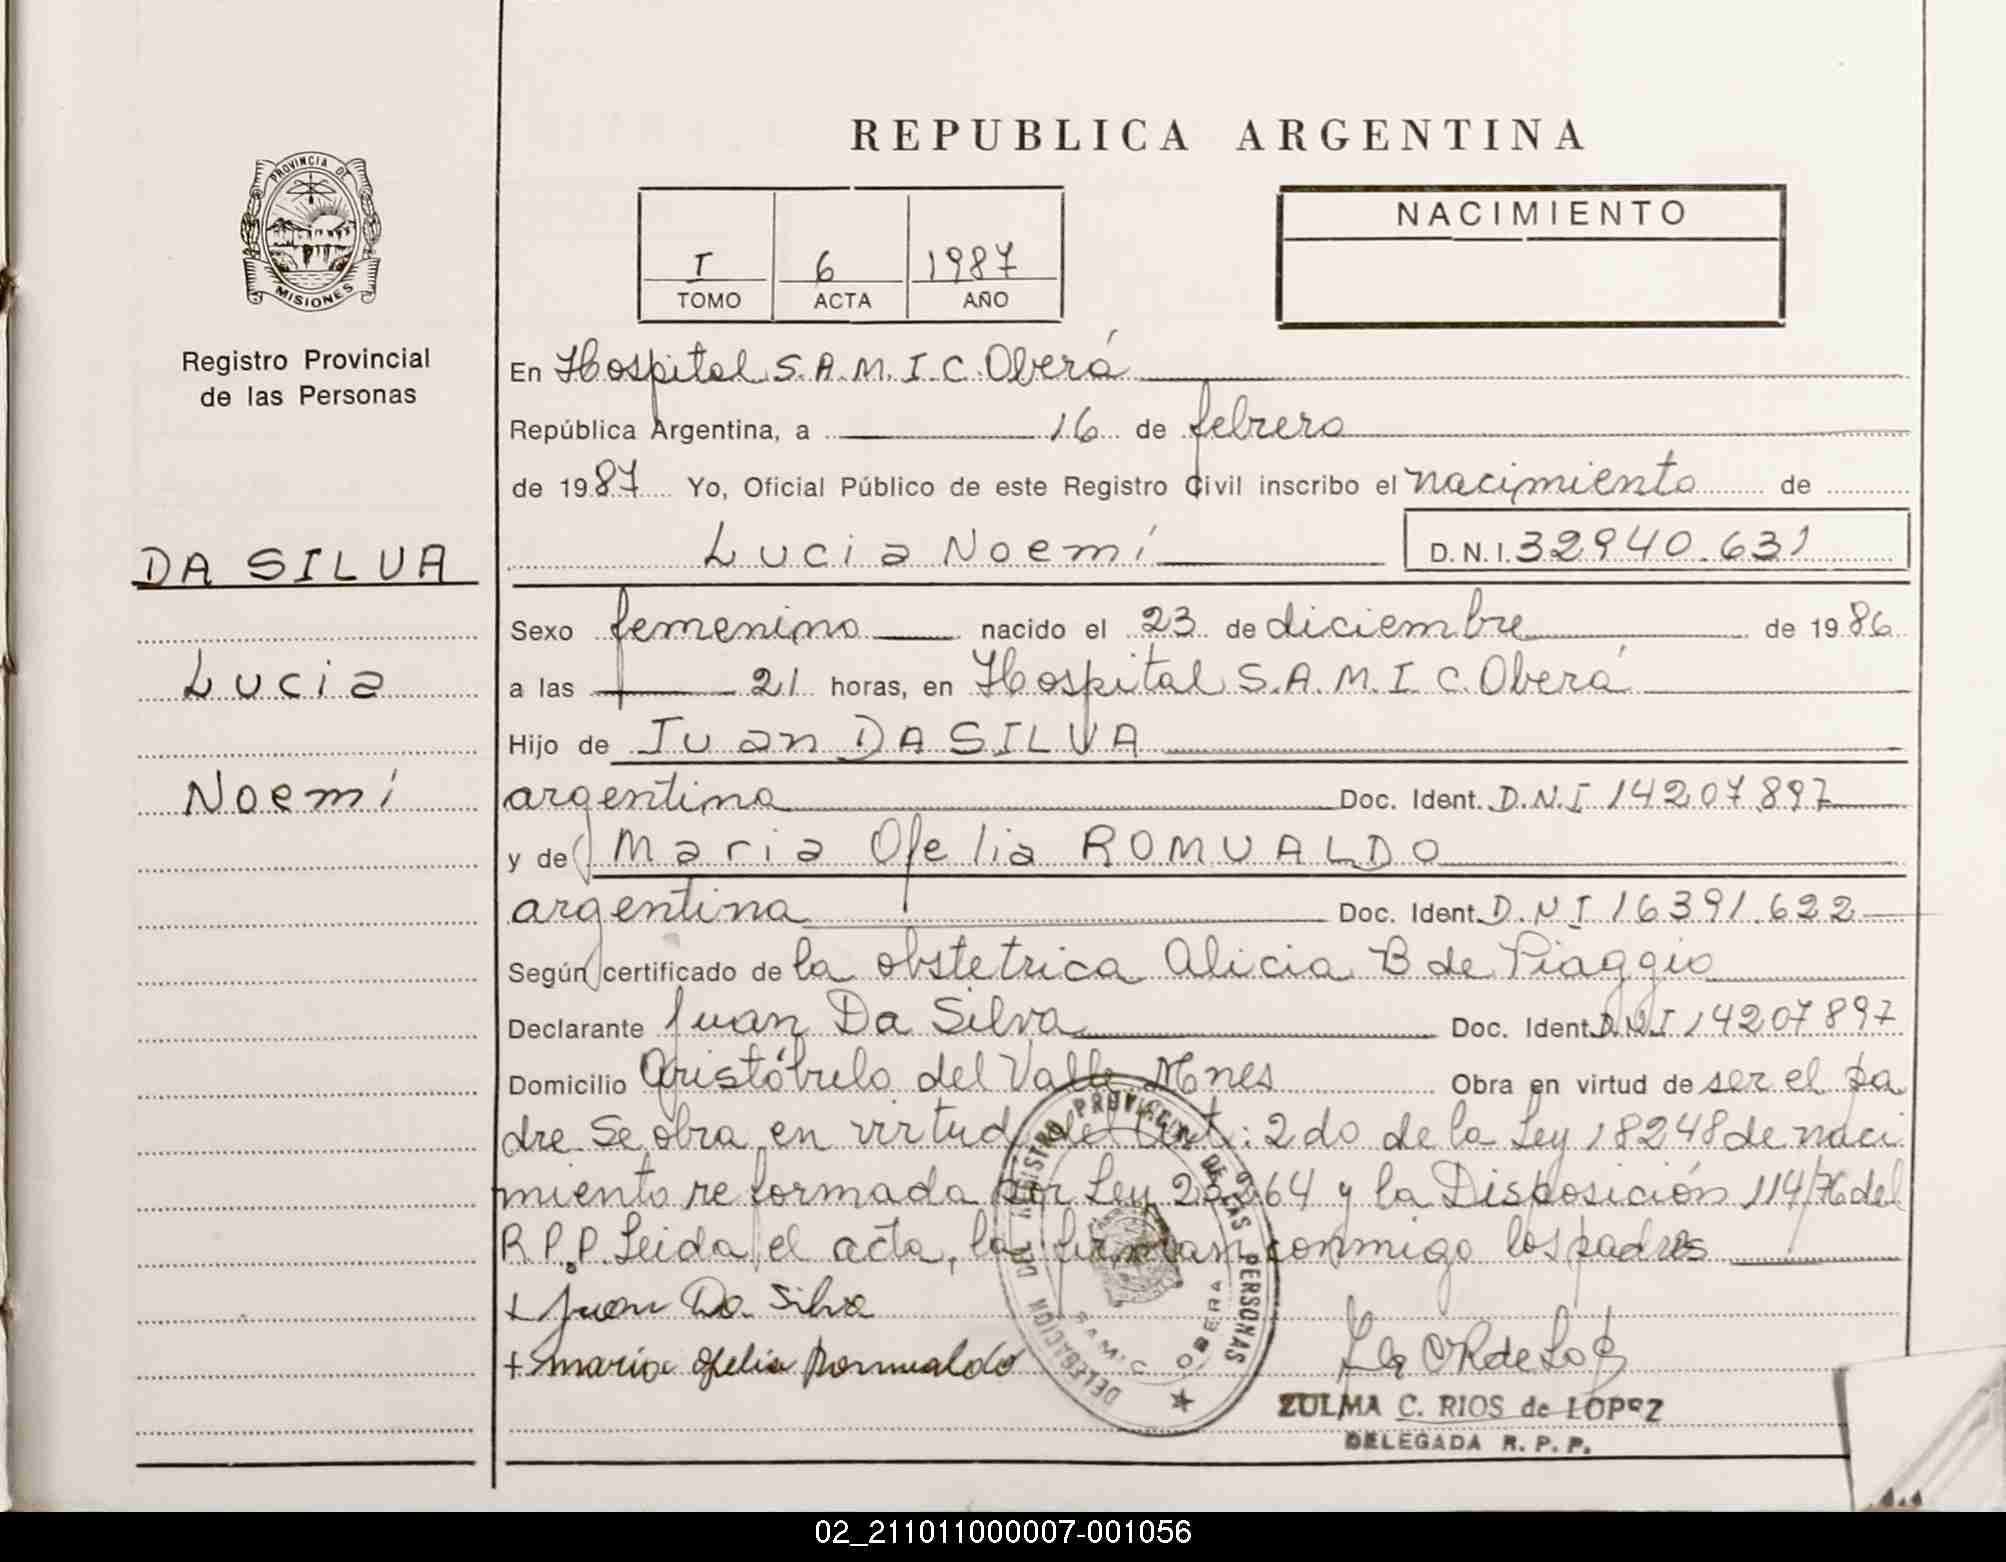 REPUBLICA ARGENTINA
PROVINCIA DE
MISIONES
Registro Provincial
de las Personas
I 6 1987
TOMO ACTA AÑO
NACIMIENTO
En Hospital S.A.M.I.C. Oberá
República Argentina, a 16 de febrero
de 1987 Yo, Oficial Público de este Registro Civil inscribo el nacimiento de
DA SILVA
Lucia Noemí D.N.I. 32940.631
Sexo femenino nacido el 23 de diciembre de 1986
Lucia
a las 21 horas, en Hospital S.A.M.I.C. Oberá
Hijo de Juan DA SILVA
Noemí
argentino Doc. Ident. D.N.I 14207897
y de Maria Ofelia ROMUALDO
argentina Doc. Ident. D.N.I 16391.622
Según certificado de la obstetrica Alicia B de Piaggio
Declarante Juan Da Silva Doc. Ident. D.N.I 14207897
Domicilio Aristóbulo del Valle Mnes Obra en virtud de ser el pa
dre Se obra en virtud del Art: 2do de la Ley 18248 de naci
miento reformada por Ley 22264 y la Disposición 114/76 del
R.P.P. Leida el acta, la firman conmigo los padres
+ Juan Da Silva
+ maria ofelia Romualdo
DELEGACION DEL REGISTRO PROVINCIAL DE LAS PERSONAS
S.A.M.I.C. OBERA
ZULMA C. RIOS de LOPEZ
DELEGADA R. P. P.
02_211011000007-001056